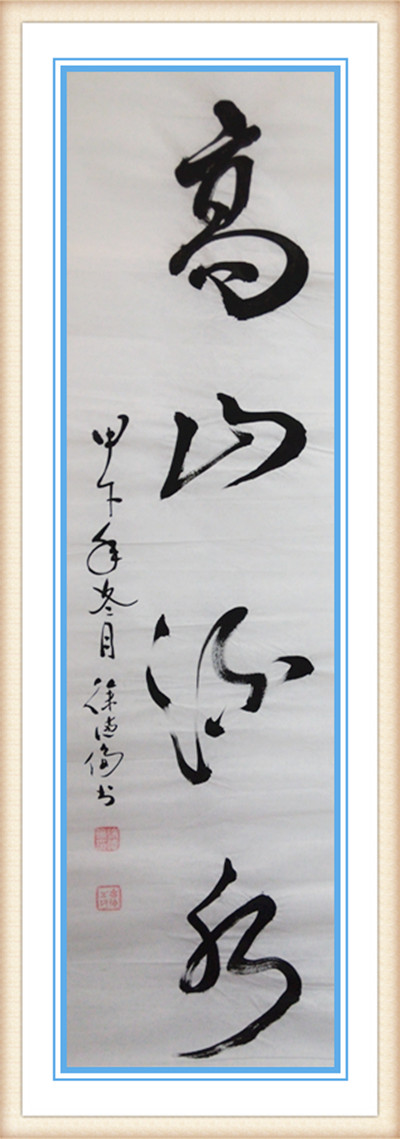 高山流水
甲午年冬月 徐德陽书